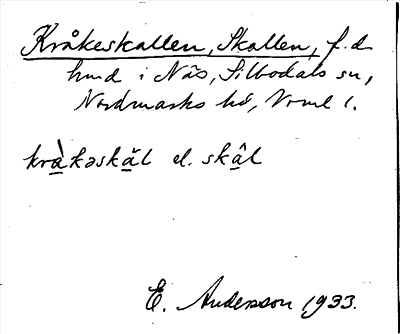 Kråkeskallen, Skallen, f.d.
hund i Näs, Silbodals sn,
Nordmarks hd, Vrml l.
krà̲kəskä̲l el. skâ̲l
E. Andersson 1933.